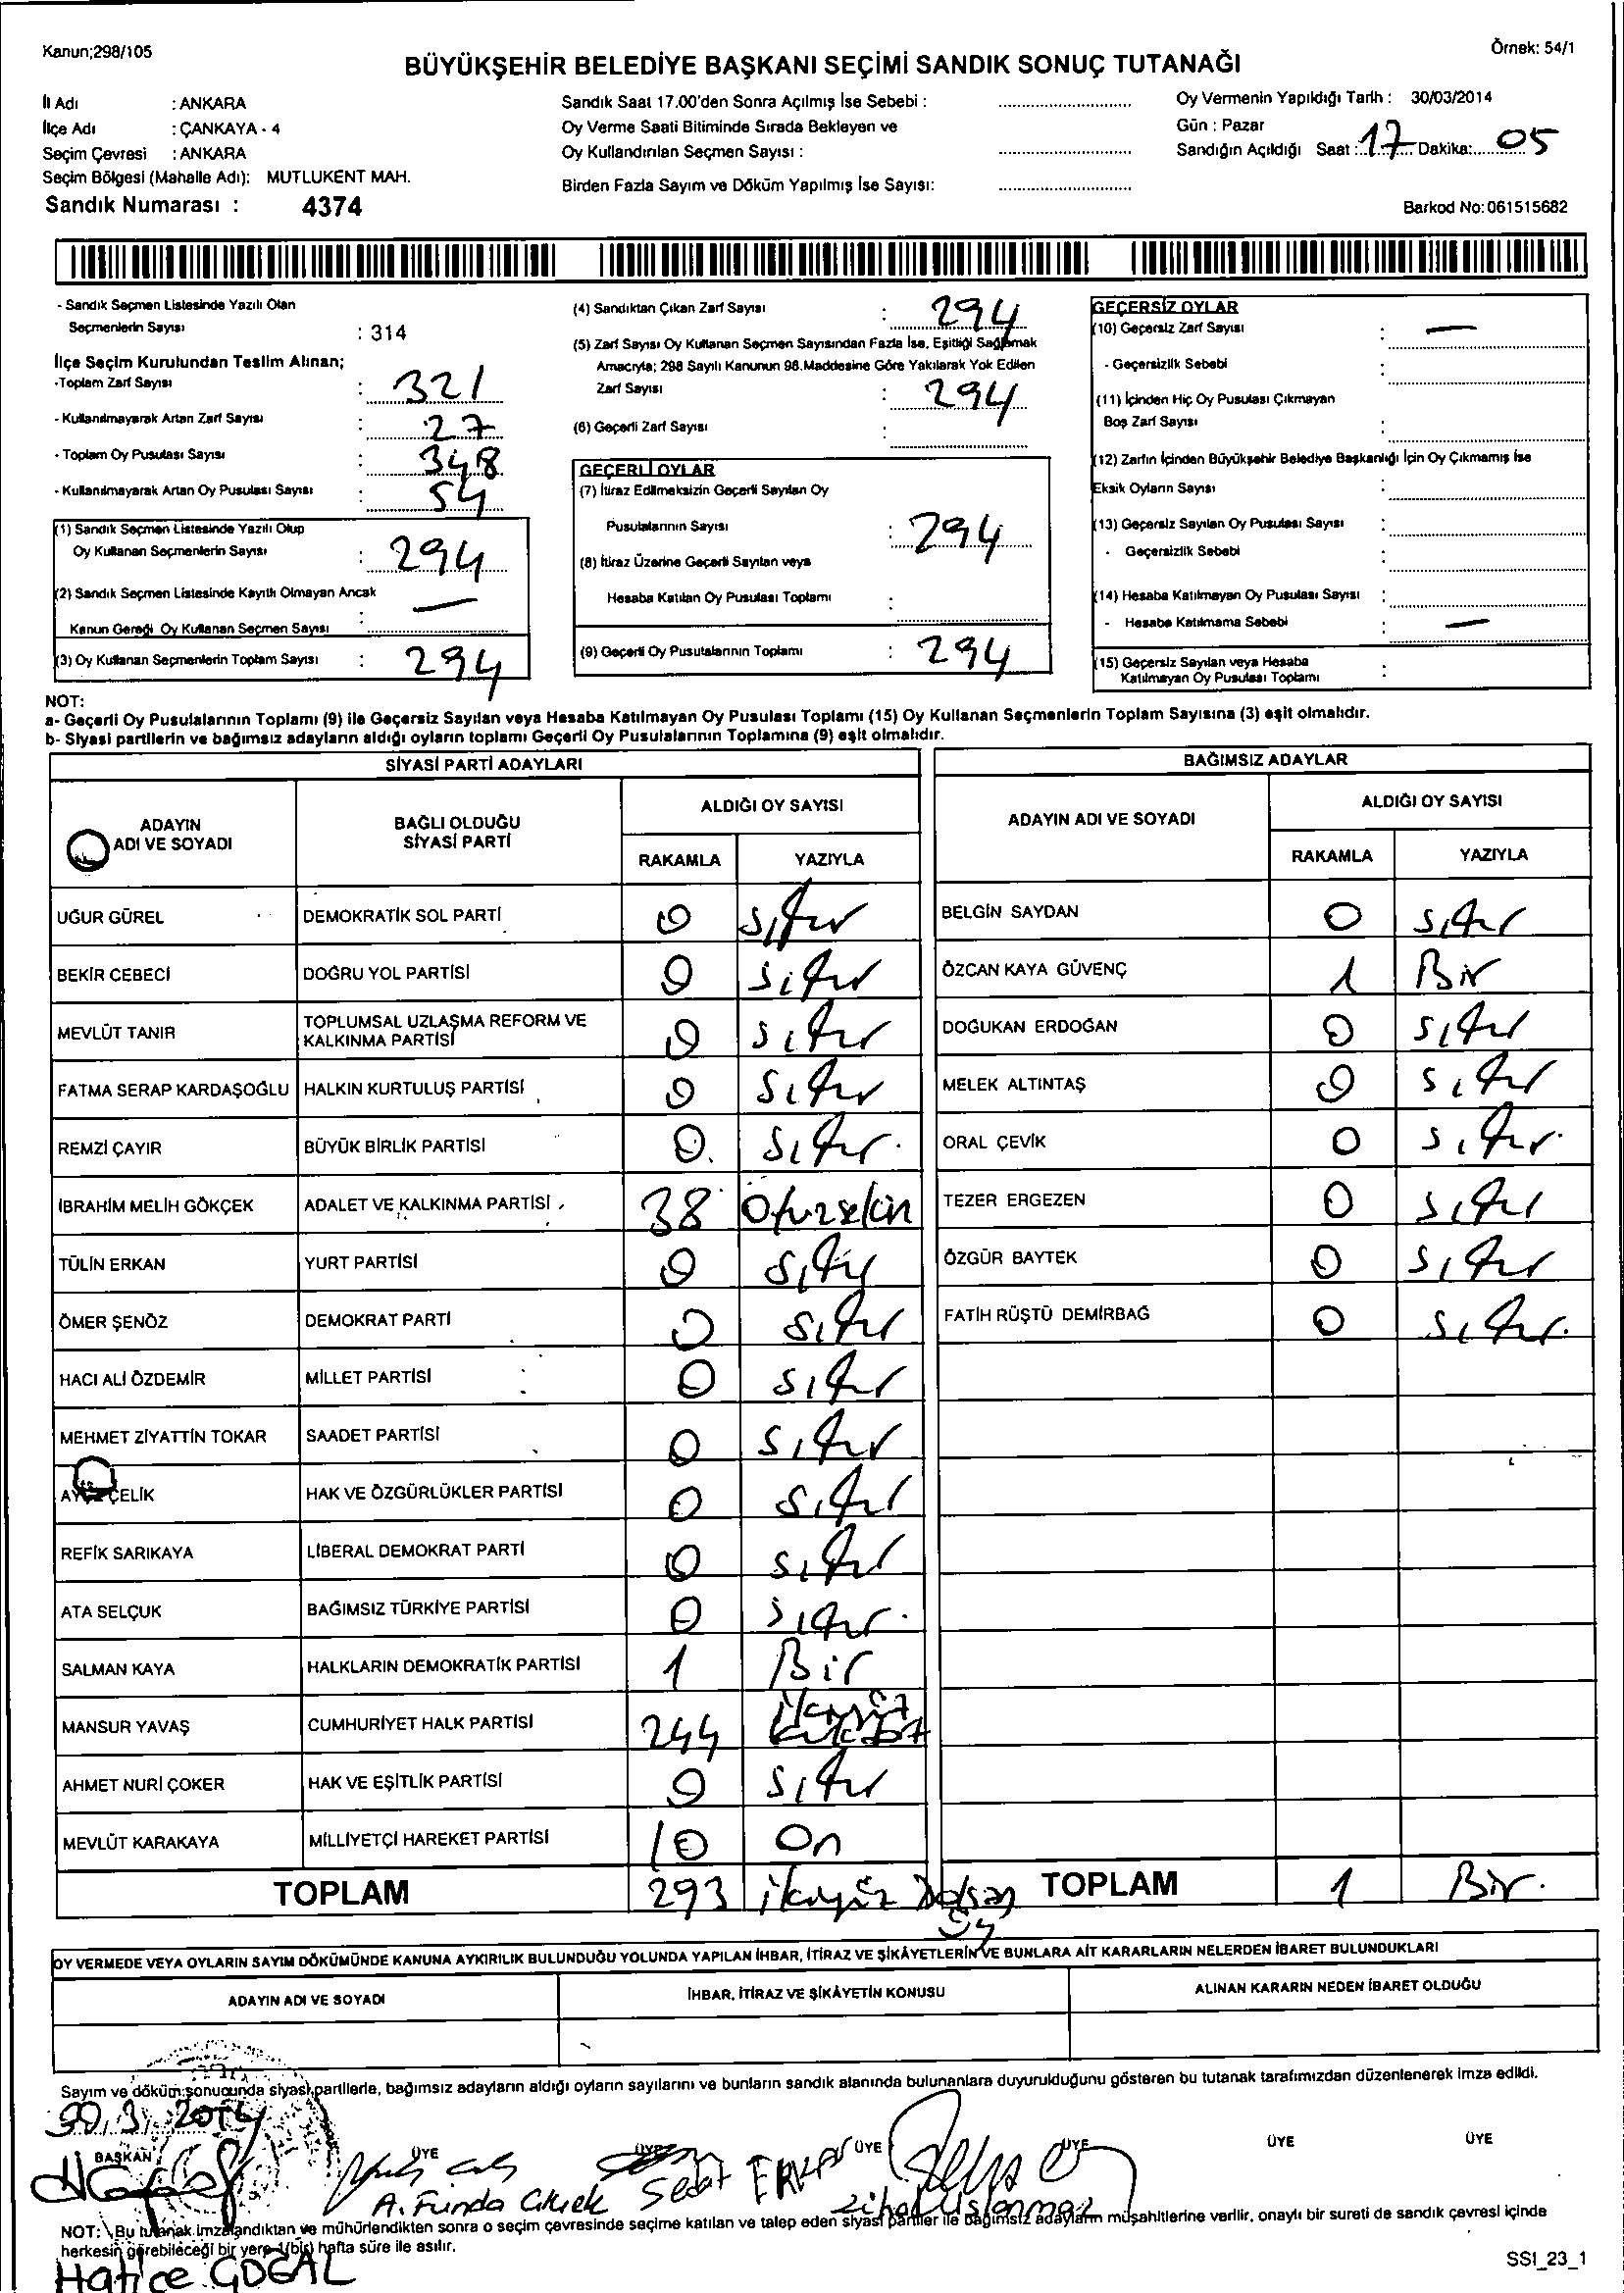 Kanun;298/105
Örnek: 54/1
BÜYÜKŞEHİR BELEDİYE BAŞKANI SEÇİMİ SANDIK SONUÇ TUTANAĞI
İl Adı : ANKARA
İlçe Adı : ÇANKAYA - 4
Seçim Çevresi : ANKARA
Seçim Bölgesi (Mahalle Adı): MUTLUKENT MAH.
Sandık Numarası : 4374
Sandık Saat 17.00'den Sonra Açılmış İse Sebebi :
Oy Verme Saati Bitiminde Sırada Bekleyen ve
Oy Kullandırılan Seçmen Sayısı :
Birden Fazla Sayım ve Döküm Yapılmış İse Sayısı:
Oy Vermenin Yapıldığı Tarih : 30/03/2014
Gün : Pazar
Sandığın Açıldığı Saat : 17 Dakika: 05
Barkod No: 061515682
- Sandık Seçmen Listesinde Yazılı Olan
Seçmenlerin Sayısı : 314
İlçe Seçim Kurulundan Teslim Alınan;
-Toplam Zarf Sayısı : 321
- Kullanılmayarak Artan Zarf Sayısı : 27
- Toplam Oy Pusulası Sayısı : 348
- Kullanılmayarak Artan Oy Pusulası Sayısı : 54
(1) Sandık Seçmen Listesinde Yazılı Olup
Oy Kullanan Seçmenlerin Sayısı : 294
(2) Sandık Seçmen Listesinde Kayıtlı Olmayan Ancak
Kanun Gereği Oy Kullanan Seçmen Sayısı : —
(3) Oy Kullanan Seçmenlerin Toplam Sayısı : 294
(4) Sandıktan Çıkan Zarf Sayısı : 294
(5) Zarf Sayısı Oy Kullanan Seçmen Sayısından Fazla İse, Eşitliği Sağlamak
Amacıyla; 298 Sayılı Kanunun 98.Maddesine Göre Yakılarak Yok Edilen
Zarf Sayısı : 294
(6) Geçerli Zarf Sayısı :
GEÇERLİ OYLAR
(7) İtiraz Edilmeksizin Geçerli Sayılan Oy
Pusulalarının Sayısı : 294
(8) İtiraz Üzerine Geçerli Sayılan veya
Hesaba Katılan Oy Pusulası Toplamı :
(9) Geçerli Oy Pusulalarının Toplamı : 294
GEÇERSİZ OYLAR
(10) Geçersiz Zarf Sayısı : —
- Geçersizlik Sebebi :
(11) İçinden Hiç Oy Pusulası Çıkmayan
Boş Zarf Sayısı :
(12) Zarfın İçinden Büyükşehir Belediye Başkanlığı İçin Oy Çıkmamış İse
Eksik Oyların Sayısı :
(13) Geçersiz Sayılan Oy Pusulası Sayısı :
- Geçersizlik Sebebi :
(14) Hesaba Katılmayan Oy Pusulası Sayısı :
- Hesaba Katılmama Sebebi : —
(15) Geçersiz Sayılan veya Hesaba
Katılmayan Oy Pusulası Toplamı :
NOT:
a- Geçerli Oy Pusulalarının Toplamı (9) ile Geçersiz Sayılan veya Hesaba Katılmayan Oy Pusulası Toplamı (15) Oy Kullanan Seçmenlerin Toplam Sayısına (3) eşit olmalıdır.
b- Siyasi partilerin ve bağımsız adayların aldığı oyların toplamı Geçerli Oy Pusulalarının Toplamına (9) eşit olmalıdır.
SİYASİ PARTİ ADAYLARI
ADAYIN
ADI VE SOYADI
BAĞLI OLDUĞU
SİYASİ PARTİ
ALDIĞI OY SAYISI
RAKAMLA YAZIYLA
UĞUR GÜREL DEMOKRATİK SOL PARTİ 0 sıfır
BEKİR CEBECİ DOĞRU YOL PARTİSİ 0 sıfır
MEVLÜT TANIR TOPLUMSAL UZLAŞMA REFORM VE
KALKINMA PARTİSİ 0 sıfır
FATMA SERAP KARDAŞOĞLU HALKIN KURTULUŞ PARTİSİ 0 sıfır
REMZİ ÇAYIR BÜYÜK BİRLİK PARTİSİ 0. sıfır.
İBRAHİM MELİH GÖKÇEK ADALET VE KALKINMA PARTİSİ 38 Otuzsekin
TÜLİN ERKAN YURT PARTİSİ 0 sıfır
ÖMER ŞENÖZ DEMOKRAT PARTİ 0 sıfır
HACI ALİ ÖZDEMİR MİLLET PARTİSİ 0 sıfır
MEHMET ZİYATTİN TOKAR SAADET PARTİSİ 0 sıfır
ÇELİK HAK VE ÖZGÜRLÜKLER PARTİSİ 0 sıfır
REFİK SARIKAYA LİBERAL DEMOKRAT PARTİ 0 sıfır
ATA SELÇUK BAĞIMSIZ TÜRKİYE PARTİSİ 0 sıfır.
SALMAN KAYA HALKLARIN DEMOKRATİK PARTİSİ 1 Bir
MANSUR YAVAŞ CUMHURİYET HALK PARTİSİ 244 ikiyüz
AHMET NURİ ÇOKER HAK VE EŞİTLİK PARTİSİ 0 sıfır
MEVLÜT KARAKAYA MİLLİYETÇİ HAREKET PARTİSİ 10 On
TOPLAM 293 ikiyüz
BAĞIMSIZ ADAYLAR
ADAYIN ADI VE SOYADI
ALDIĞI OY SAYISI
RAKAMLA YAZIYLA
BELGİN SAYDAN 0 sıfır
ÖZCAN KAYA GÜVENÇ 1 Bir
DOĞUKAN ERDOĞAN 0 sıfır
MELEK ALTINTAŞ 0 sıfır
ORAL ÇEVİK 0 sıfır.
TEZER ERGEZEN 0 sıfır
ÖZGÜR BAYTEK 0 sıfır
FATİH RÜŞTÜ DEMİRBAĞ 0 sıfır.
TOPLAM 1 Bir.
OY VERMEDE VEYA OYLARIN SAYIM DÖKÜMÜNDE KANUNA AYKIRILIK BULUNDUĞU YOLUNDA YAPILAN İHBAR, İTİRAZ VE ŞİKÂYETLERİN VE BUNLARA AİT KARARLARIN NELERDEN İBARET BULUNDUKLARI
ADAYIN ADI VE SOYADI
İHBAR, İTİRAZ VE ŞİKÂYETİN KONUSU
ALINAN KARARIN NEDEN İBARET OLDUĞU
Sayım ve döküm sonucunda siyasi partilerle, bağımsız adayların aldığı oyların sayılarını ve bunların sandık alanında bulunanlara duyurulduğunu gösteren bu tutanak tarafımızdan düzenlenerek imza edildi.
30.3.2014
BAŞKAN ÜYE ÜYE ÜYE ÜYE ÜYE ÜYE
A. Funda
NOT: Bu tutanak imzalandıktan ve mühürlendikten sonra o seçim çevresinde seçime katılan ve talep eden siyasi partiler ile bağımsız adayların müşahitlerine verilir, onaylı bir sureti de sandık çevresi içinde
herkesin görebileceği bir yere 1(bir) hafta süre ile asılır.
Hatice
SSI_23_1